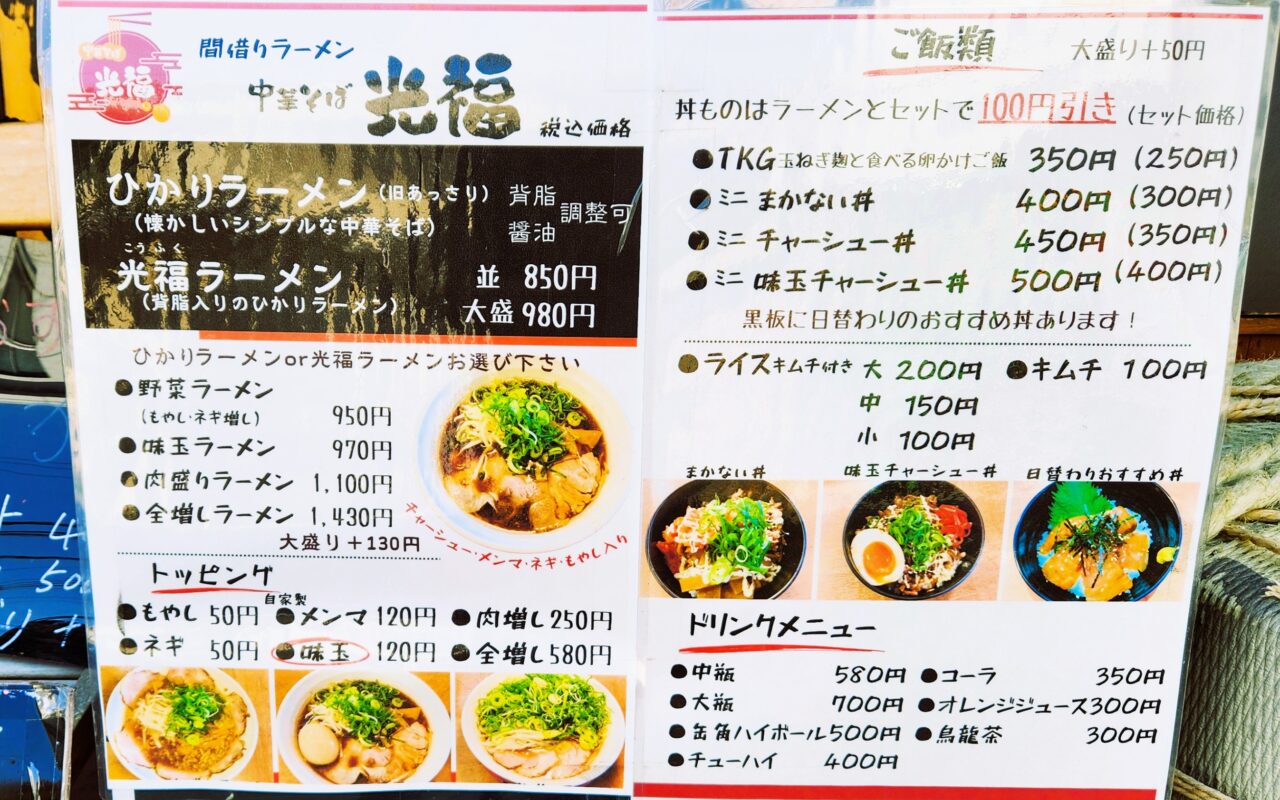 中華そば
光福
間借りラーメン
中華そば 光福
税込価格
ひかりラーメン(旧あっさり)
(懐かしいシンプルな中華そば)
背脂
醤油
調整可
こうふく
光福ラーメン
(背脂入りのひかりラーメン)
並 850円
大盛 980円
ひかりラーメンor光福ラーメンお選び下さい
●野菜ラーメン
(もやし・ネギ増し) 950円
●味玉ラーメン 970円
●肉盛りラーメン 1,100円
●全増しラーメン 1,430円
大盛り+130円
チャーシュー・メンマ・ネギ・もやし入り
トッピング
●もやし 50円
●ネギ 50円
自家製
●メンマ 120円
●味玉 120円
●肉増し 250円
●全増し 580円
ご飯類 大盛り+50円
丼ものはラーメンとセットで100円引き(セット価格)
●TKG玉ねぎ麹と食べる卵かけご飯 350円(250円)
●ミニ まかない丼 400円(300円)
●ミニ チャーシュー丼 450円(350円)
●ミニ 味玉チャーシュー丼 500円(400円)
黒板に日替わりのおすすめ丼あります!
●ライスキムチ付き 大 200円
中 150円
小 100円
●キムチ 100円
まかない丼
味玉チャーシュー丼
日替わりおすすめ丼
ドリンクメニュー
●中瓶 580円
●大瓶 700円
●缶角ハイボール500円
●チューハイ 400円
●コーラ 350円
●オレンジジュース300円
●烏龍茶 300円